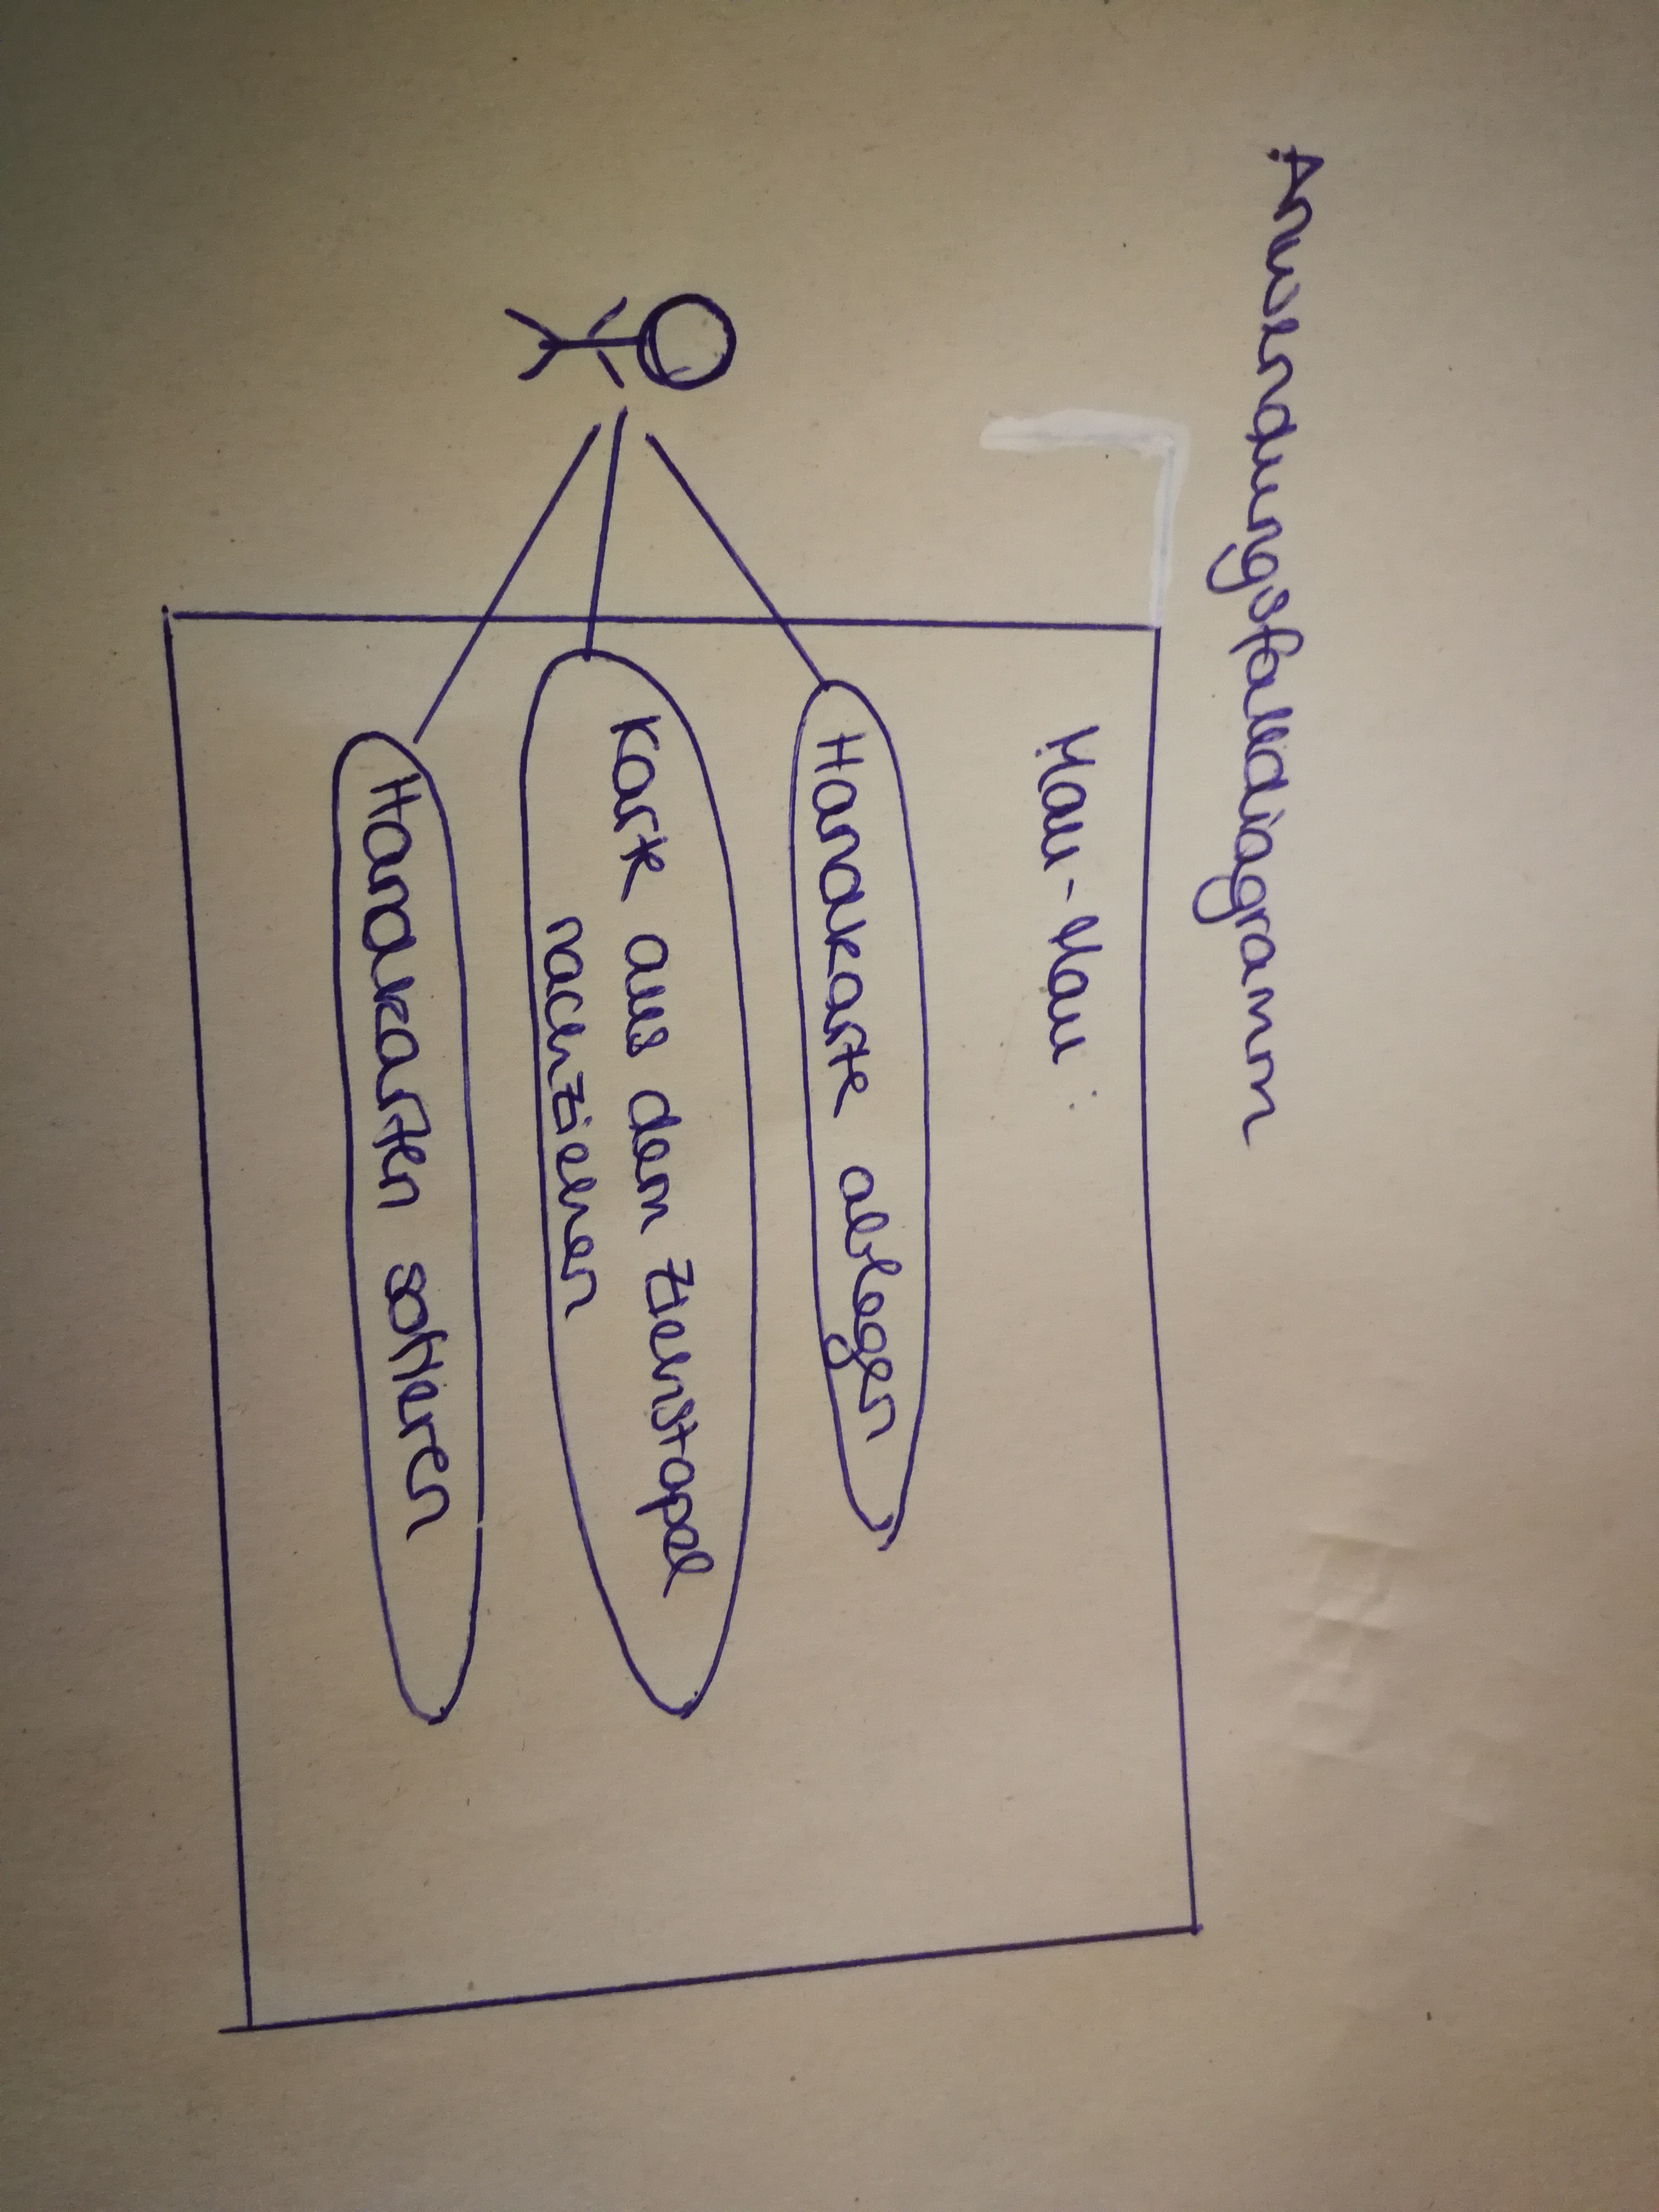 Anwendungsfalldiagramm
Mau-Mau
Handkarte ablegen
Karte aus dem Ziehstapel
nachziehen
Handkarten sortieren